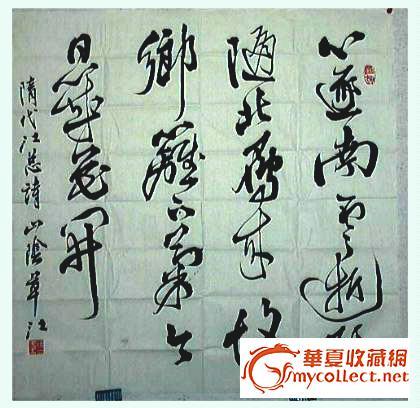 心逐南云逝形
隨北雁来故
鄉籬下菊今
日幾花開
隋代江总詩 山陰 江
華夏收藏網
mycollect.net